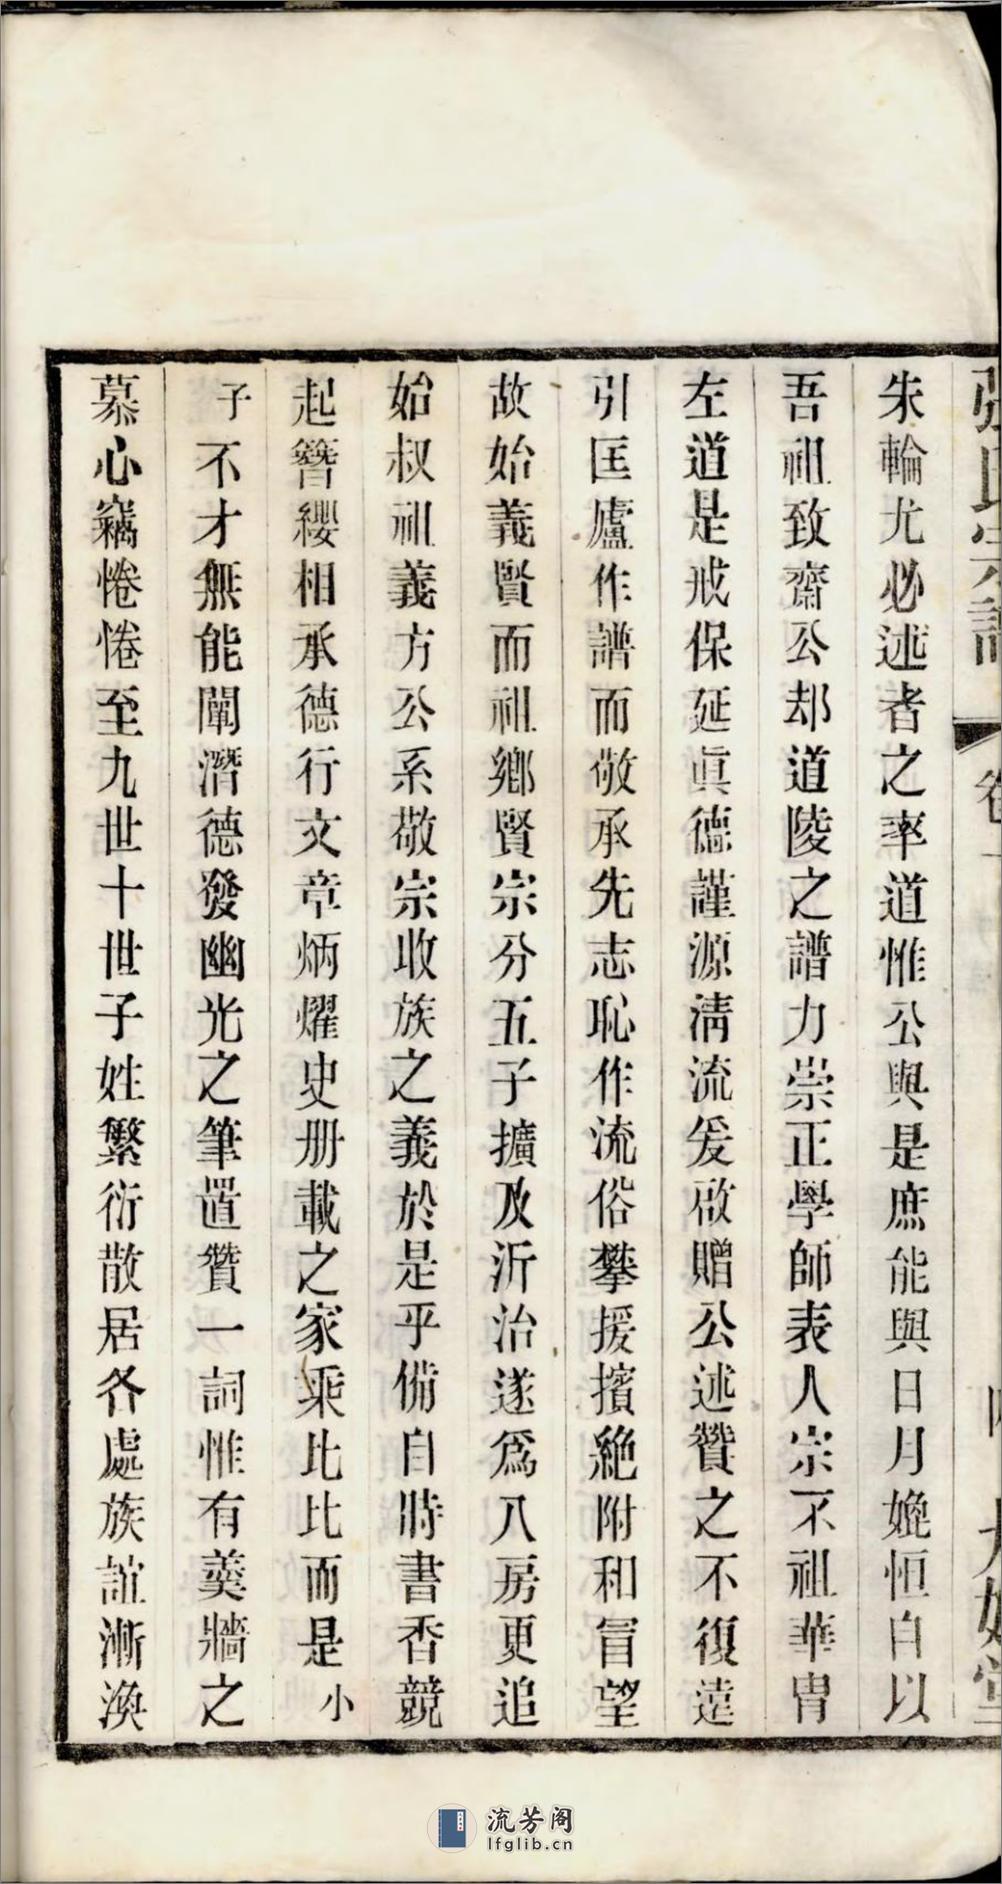 張氏宗譜
卷一
朱輪尤必述者之率道惟公與是庶能與日月媲恒自以
吾祖致齋公却道陵之譜力崇正學師表人宗不祖華胄
左道是戒保延眞德謹源淸流爰啟贈公述贊之不復遠
引匡廬作譜而敬承先志恥作流俗攀援擯絶附和冒望
故始義賢而祖鄉賢宗分五子擴及沂治遂爲八房更追
始叔祖義方公系敬宗收族之義於是乎備自時書香競
起簪纓相承德行文章炳燿史册載之家乘比比而是小
子不才無能闡潛德發幽光之筆置贊一詞惟有羹牆之
慕心竊惓惓至九世十世子姓繁衍散居各處族誼漸渙
流芳阁
lfglib.cn